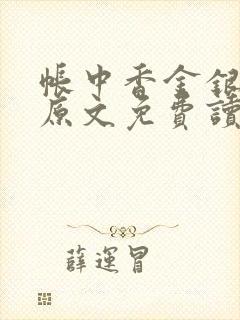 帳中香金銀
原文免費讀
薛運冒